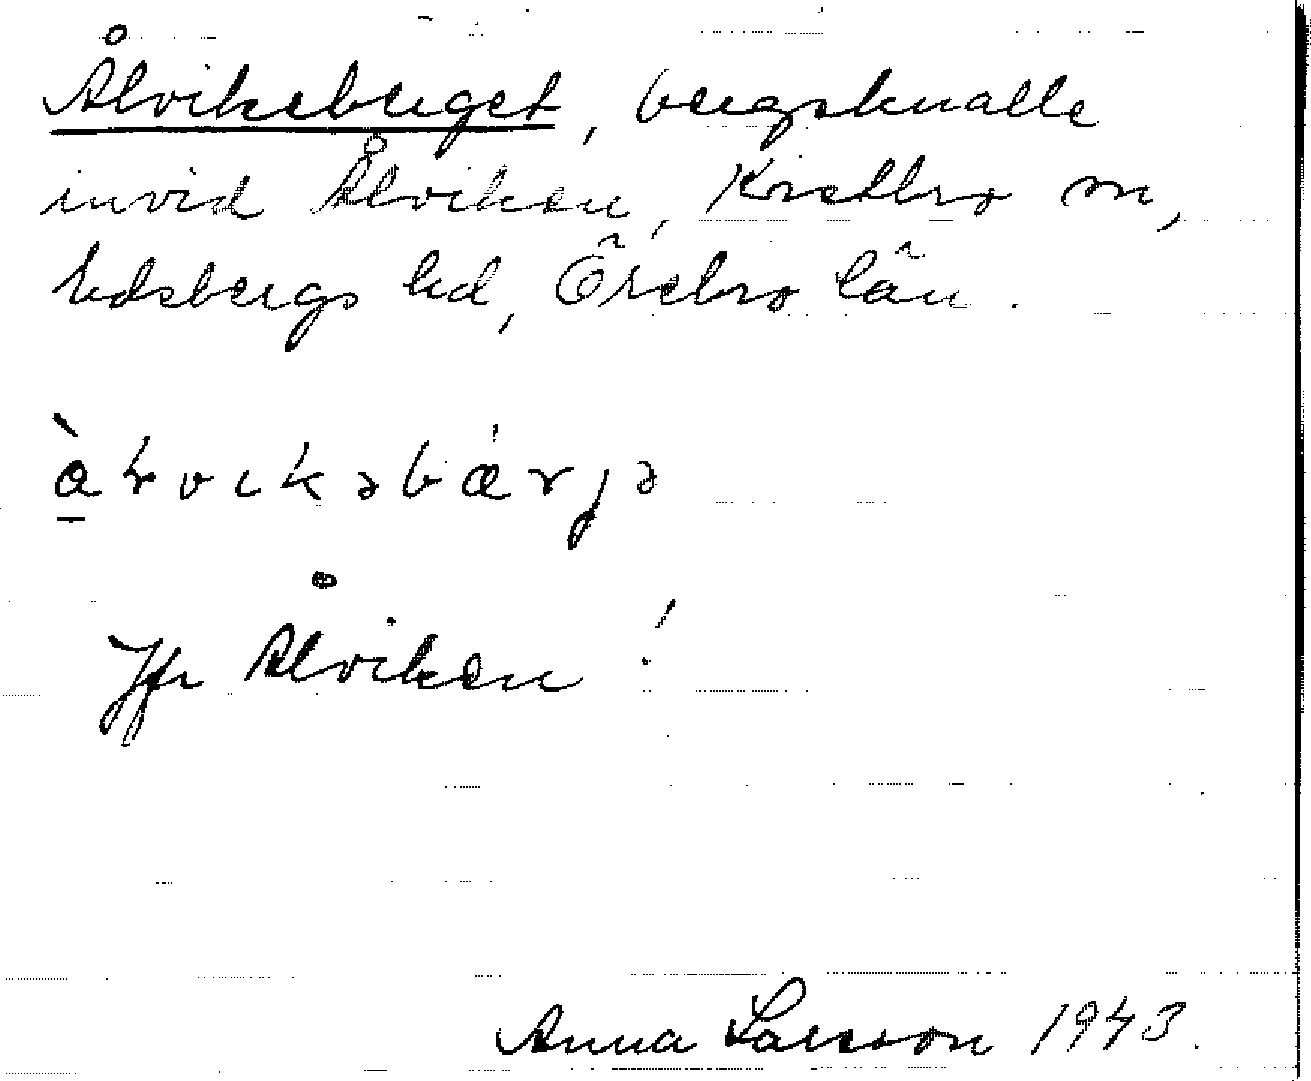 Ålvikeberget, bergsknalle
invid Ålviken, Kvistbro sn,
Edsbergs hd, Örebro län.
Jfr Ålviken!
Anna Larsson 1943.